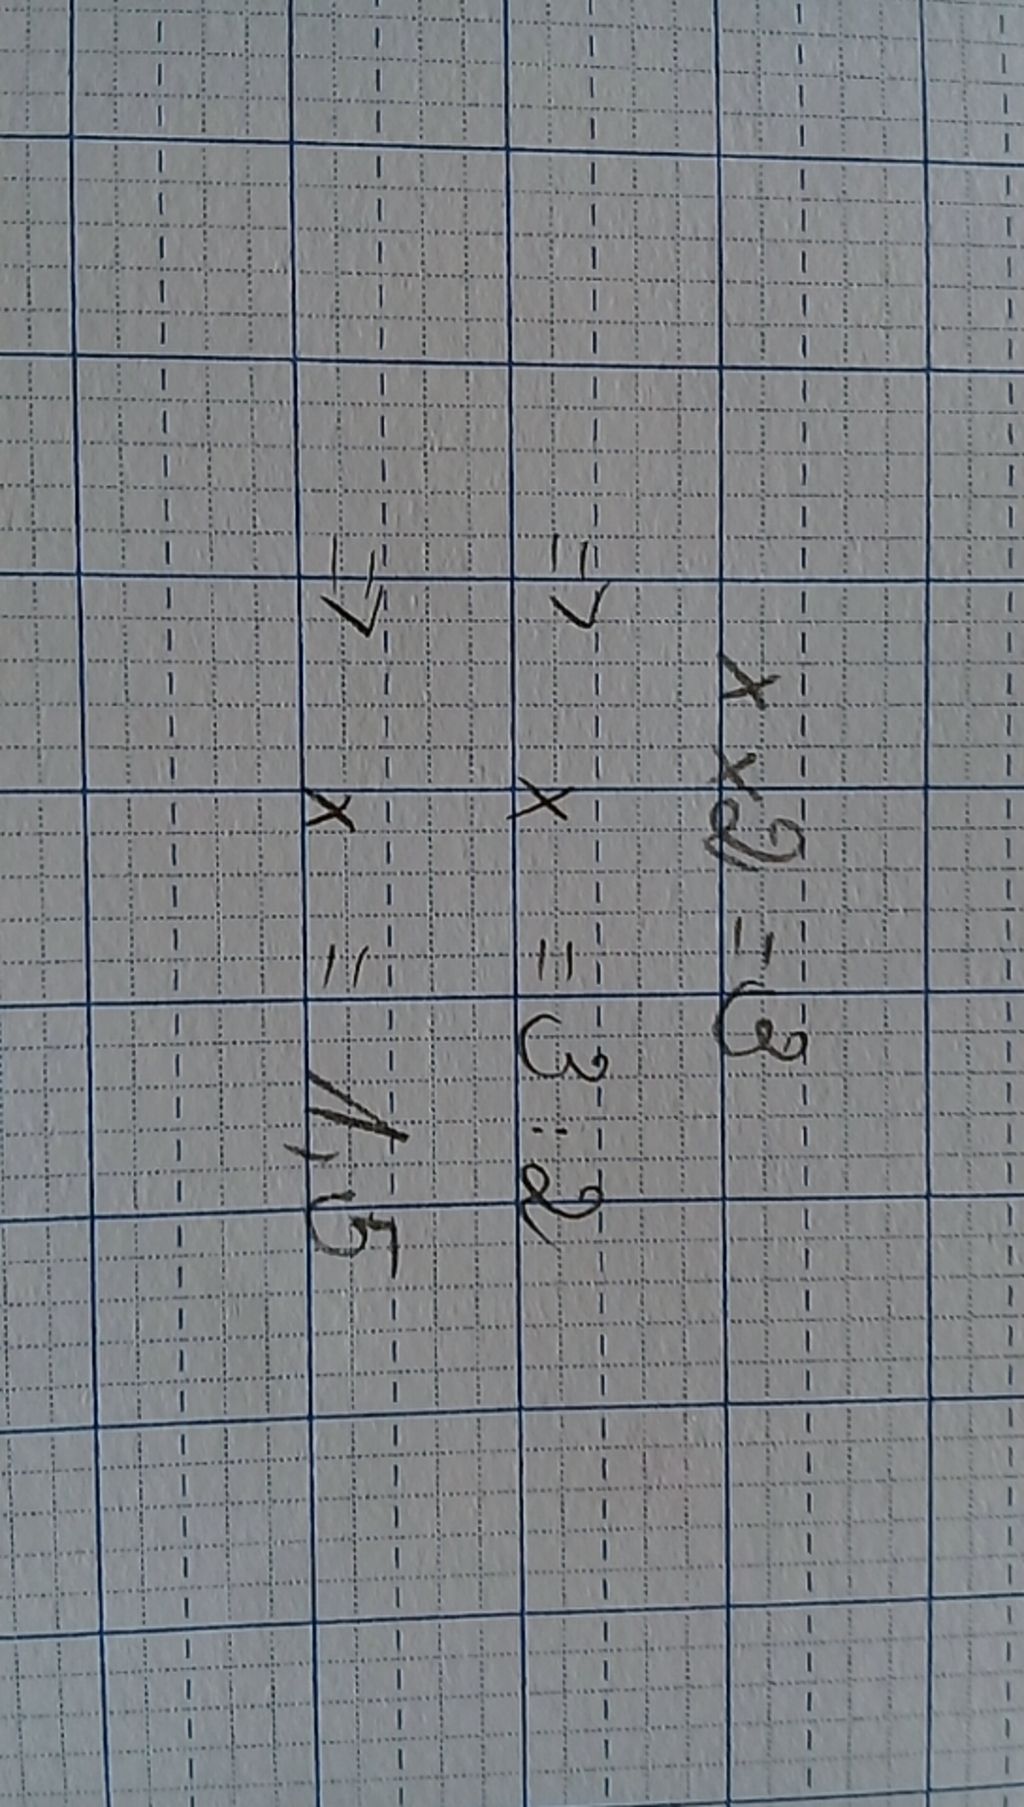 x x 2 = 3
=> x = 3 : 2
=> x = 1,5